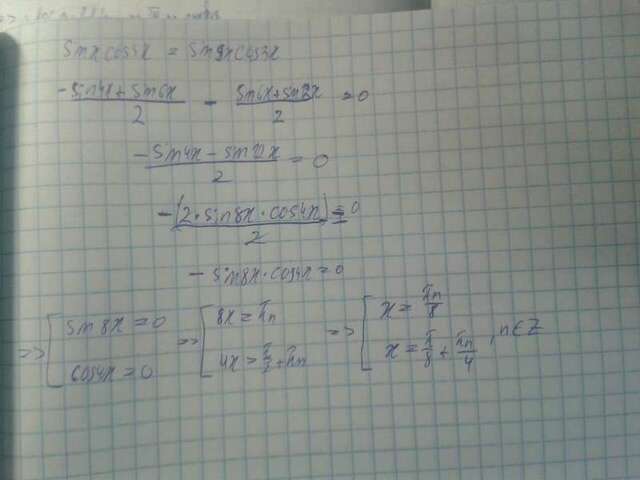 sinx cos5x = sin9x cos3x
-sin4x + sin6x / 2 - sin6x + sin12x / 2 = 0
-sin4x - sin12x / 2 = 0
-(2 · sin8x · cos4x) / 2 = 0
- sin8x · cos4x = 0
=> [ sin8x = 0 => [ 8x = πn => [ x = πn/8
cos4x = 0 4x = π/2 + πn x = π/8 + πn/4 , n∈Z